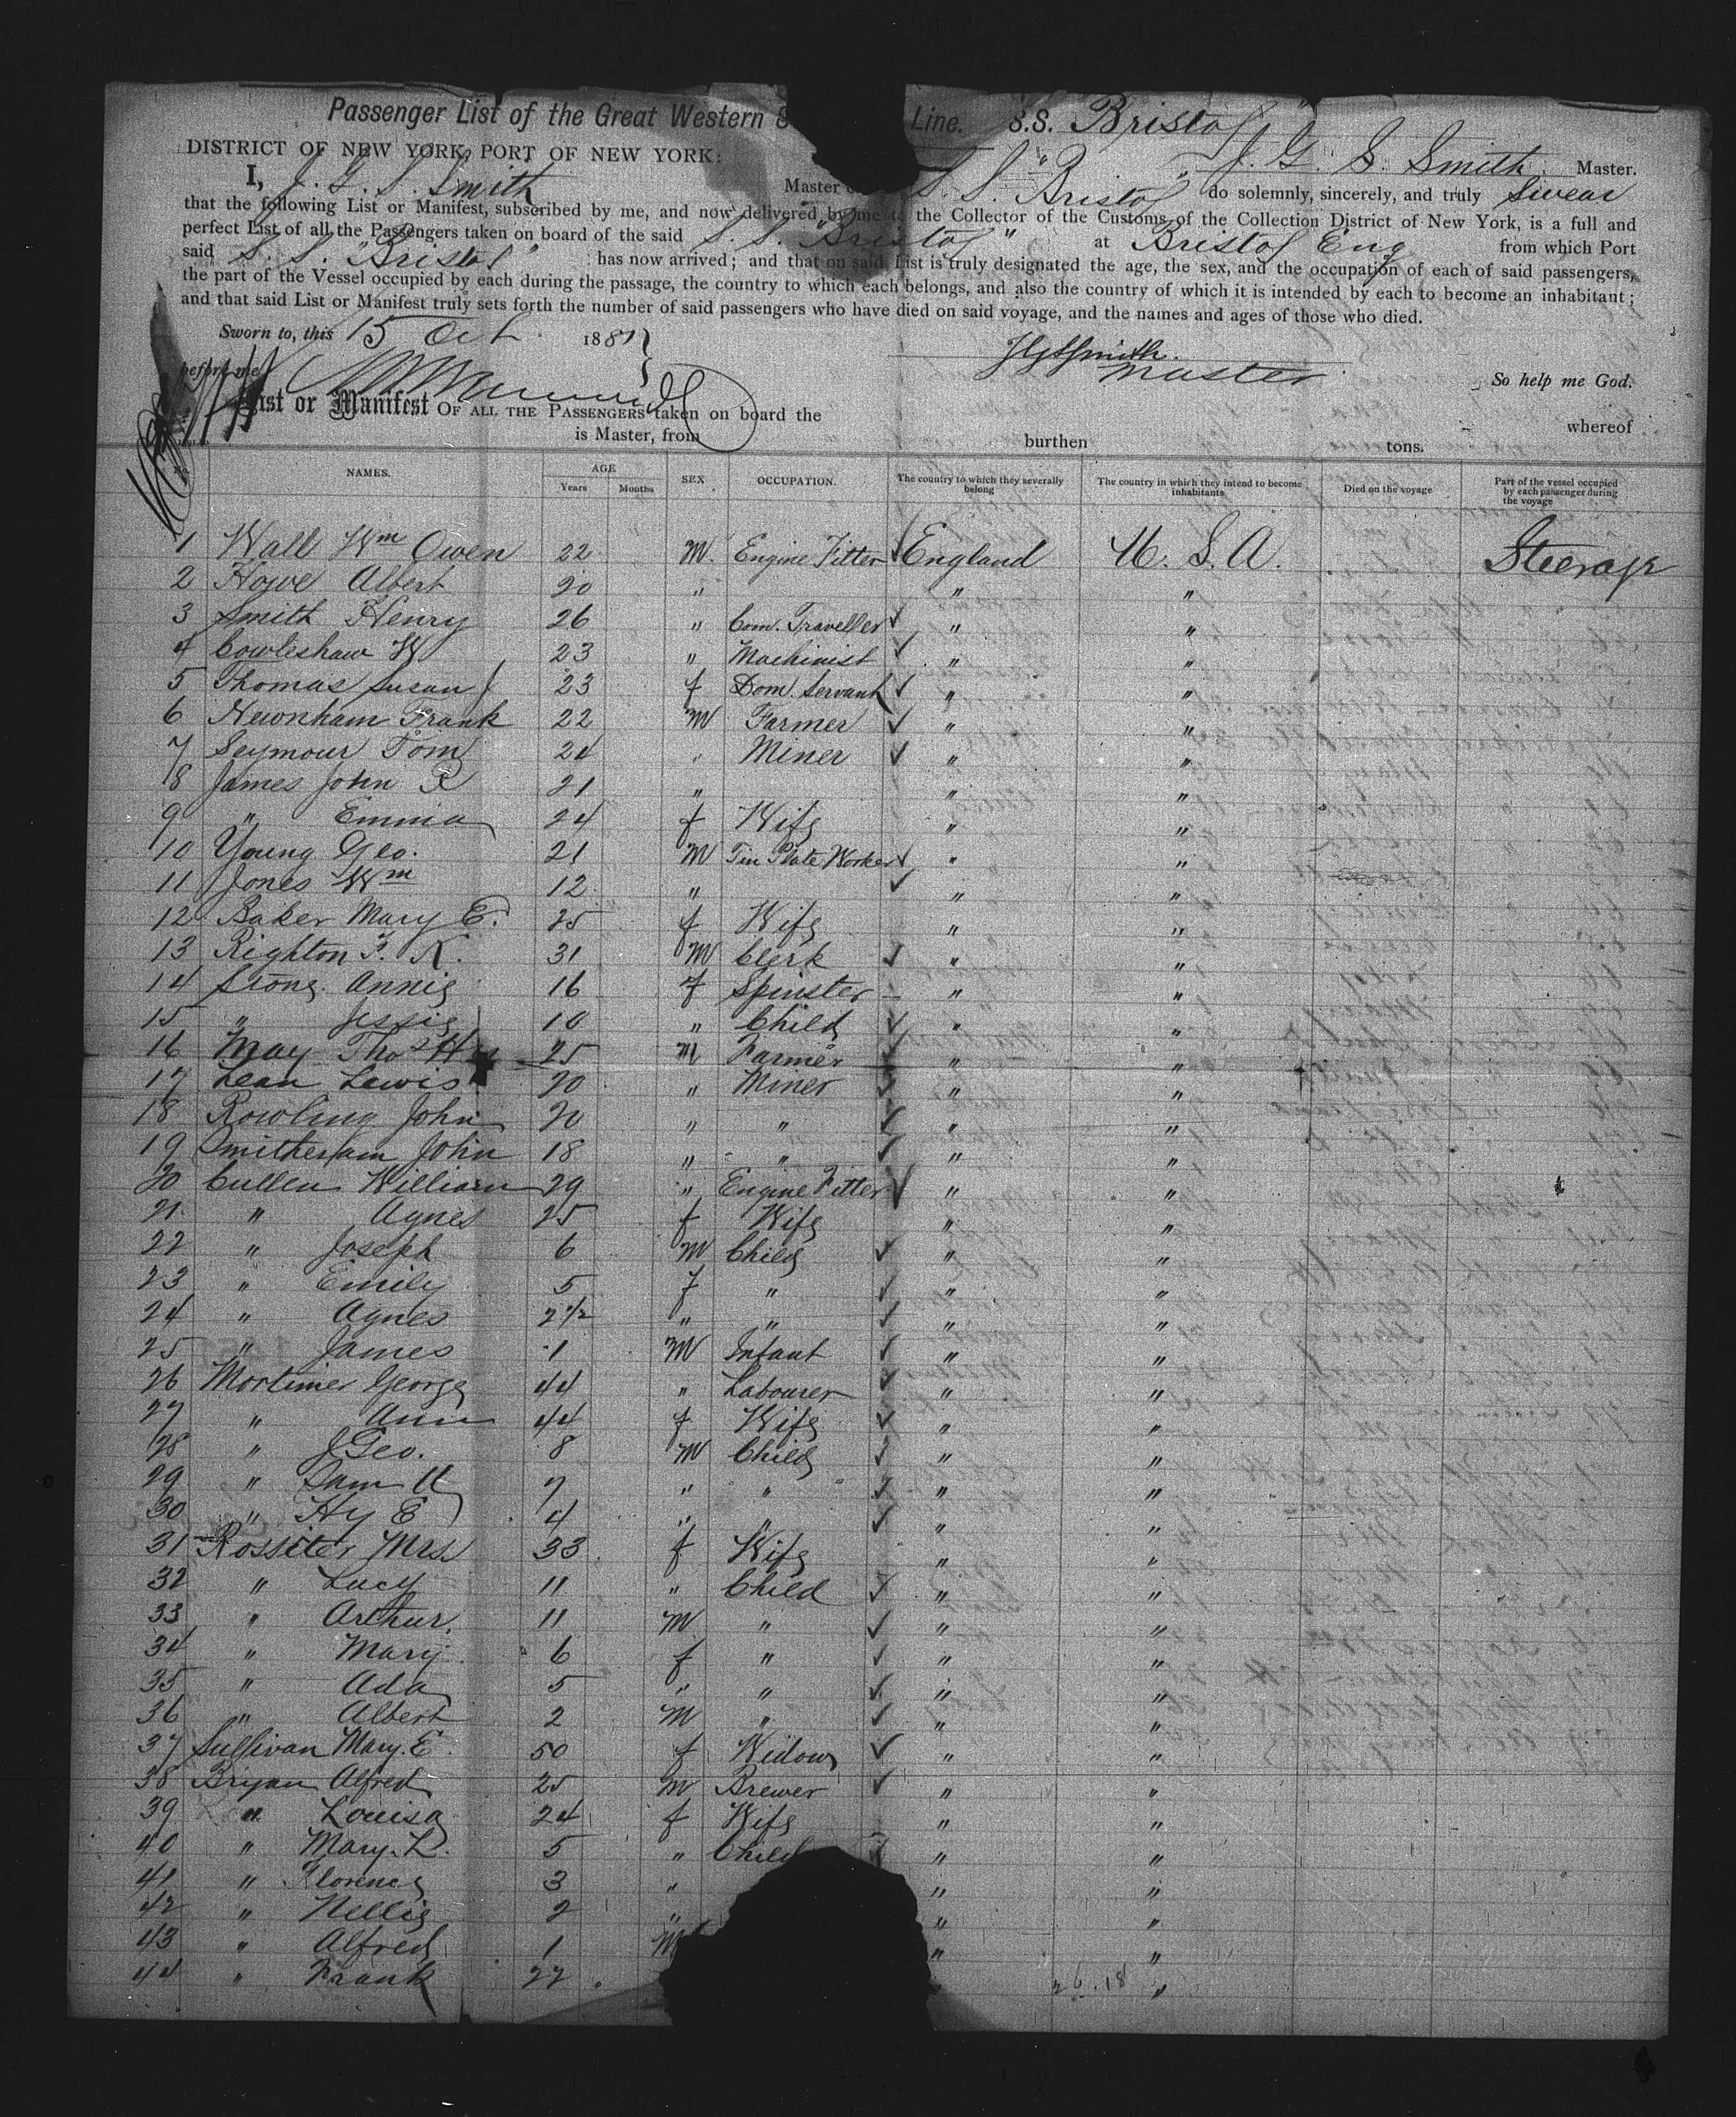 Passenger List of the Great Western S Line. S.S. "Bristol"
DISTRICT OF NEW YORK, PORT OF NEW YORK: J. G. S. Smith Master.
I, J. G. S. Smith Master S. S. "Bristol" do solemnly, sincerely, and truly Swear
that the following List or Manifest, subscribed by me, and now delivered by me to the Collector of the Customs of the Collection District of New York, is a full and
perfect List of all the Passengers taken on board of the said S. S. "Bristol" at Bristol Eng from which Port
said S. S. "Bristol" has now arrived; and that on said List is truly designated the age, the sex, and the occupation of each of said passengers,
the part of the Vessel occupied by each during the passage, the country to which each belongs, and also the country of which it is intended by each to become an inhabitant;
and that said List or Manifest truly sets forth the number of said passengers who have died on said voyage, and the names and ages of those who died.
Sworn to, this 15 Oct. 1881
JGSSmith.
before me Master So help me God.
List or Manifest OF ALL THE PASSENGERS taken on board the whereof
is Master, from burthen tons.
No. NAMES. AGE Years Months SEX. OCCUPATION. The country to which they severally belong The country in which they intend to become inhabitants Died on the voyage Part of the vessel occupied by each passenger during the voyage
1 Wall Wm Owen 22 M. Engine Fitter ✓ England U. S. A. Steerage
2 Howe Albert 20 " " "
3 Smith Henry 26 " Com. Traveller ✓ " "
4 Cowleshaw W 23 " Machinist ✓ " "
5 Thomas Susan 23 f Dom. Servant ✓ " "
6 Newnham Frank 22 M Farmer ✓ " "
7 Seymour Tom 24 " Miner ✓ " "
8 James John R 21 " " "
9 " Emma 24 f Wife " "
10 Young Geo. 21 M Tin Plate Worker ✓ " "
11 Jones Wm 12 " ✓ " "
12 Baker Mary E. 25 f Wife " "
13 Righton F. K. 31 M Clerk ✓ " "
14 Annie 16 f Spinster " "
15 " Jessie 10 " Child ✓ " "
16 May Thos 25 M Farmer ✓ " "
17 Lean Lewis 20 " Miner ✓ " "
18 Rowling John 20 " " ✓ " "
19 Smitheram John 18 " " ✓ " "
20 Cullen William 29 " Engine Fitter ✓ " "
21 " Agnes 25 f Wife " "
22 " Joseph 6 M Child ✓ " "
23 " Emily 5 f " ✓ " "
24 " Agnes 2 1/2 " " ✓ " "
25 " James 1 M Infant ✓ " "
26 Mortimer George 44 " Labourer ✓ " "
27 " Ann 44 f Wife ✓ " "
28 " J Geo. 8 M Child ✓ " "
29 " Sam 7 " " ✓ " "
30 " Hy E 4 " " ✓ " "
31 Rossiter Mrs. 33 f Wife " "
32 " Lucy 11 " Child ✓ " "
33 " Arthur. 11 M " ✓ " "
34 " Mary 6 f " ✓ " "
35 " Ada 5 " " ✓ " "
36 " Albert 2 M " ✓ " "
37 Sullivan Mary. E. 50 f Widow ✓ " "
38 Bryan Alfred 25 M Brewer ✓ " "
39 " Louisa 24 f Wife " "
40 " Mary. L. 5 " Child ✓ " "
41 " Florence 3 " " "
42 " Nellie 2 " " "
43 " Alfred 1 M " "
44 " Frank 22 "